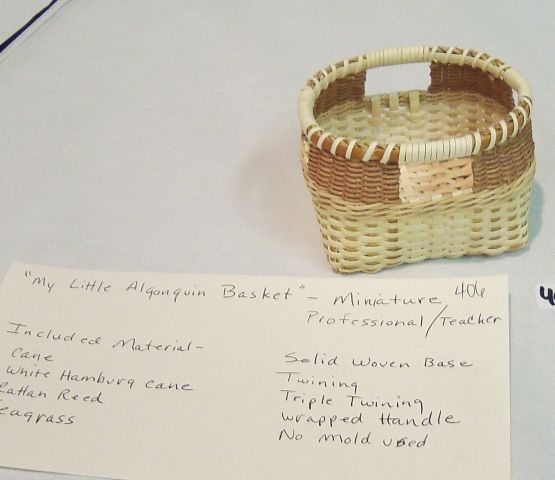 "My Little Algonquin Basket" - Miniature 406
Professional/Teacher
Included Material-
Cane
White Hamburg Cane
Rattan Reed
Seagrass
Solid Woven Base
Twining
Triple Twining
Wrapped Handle
No mold used